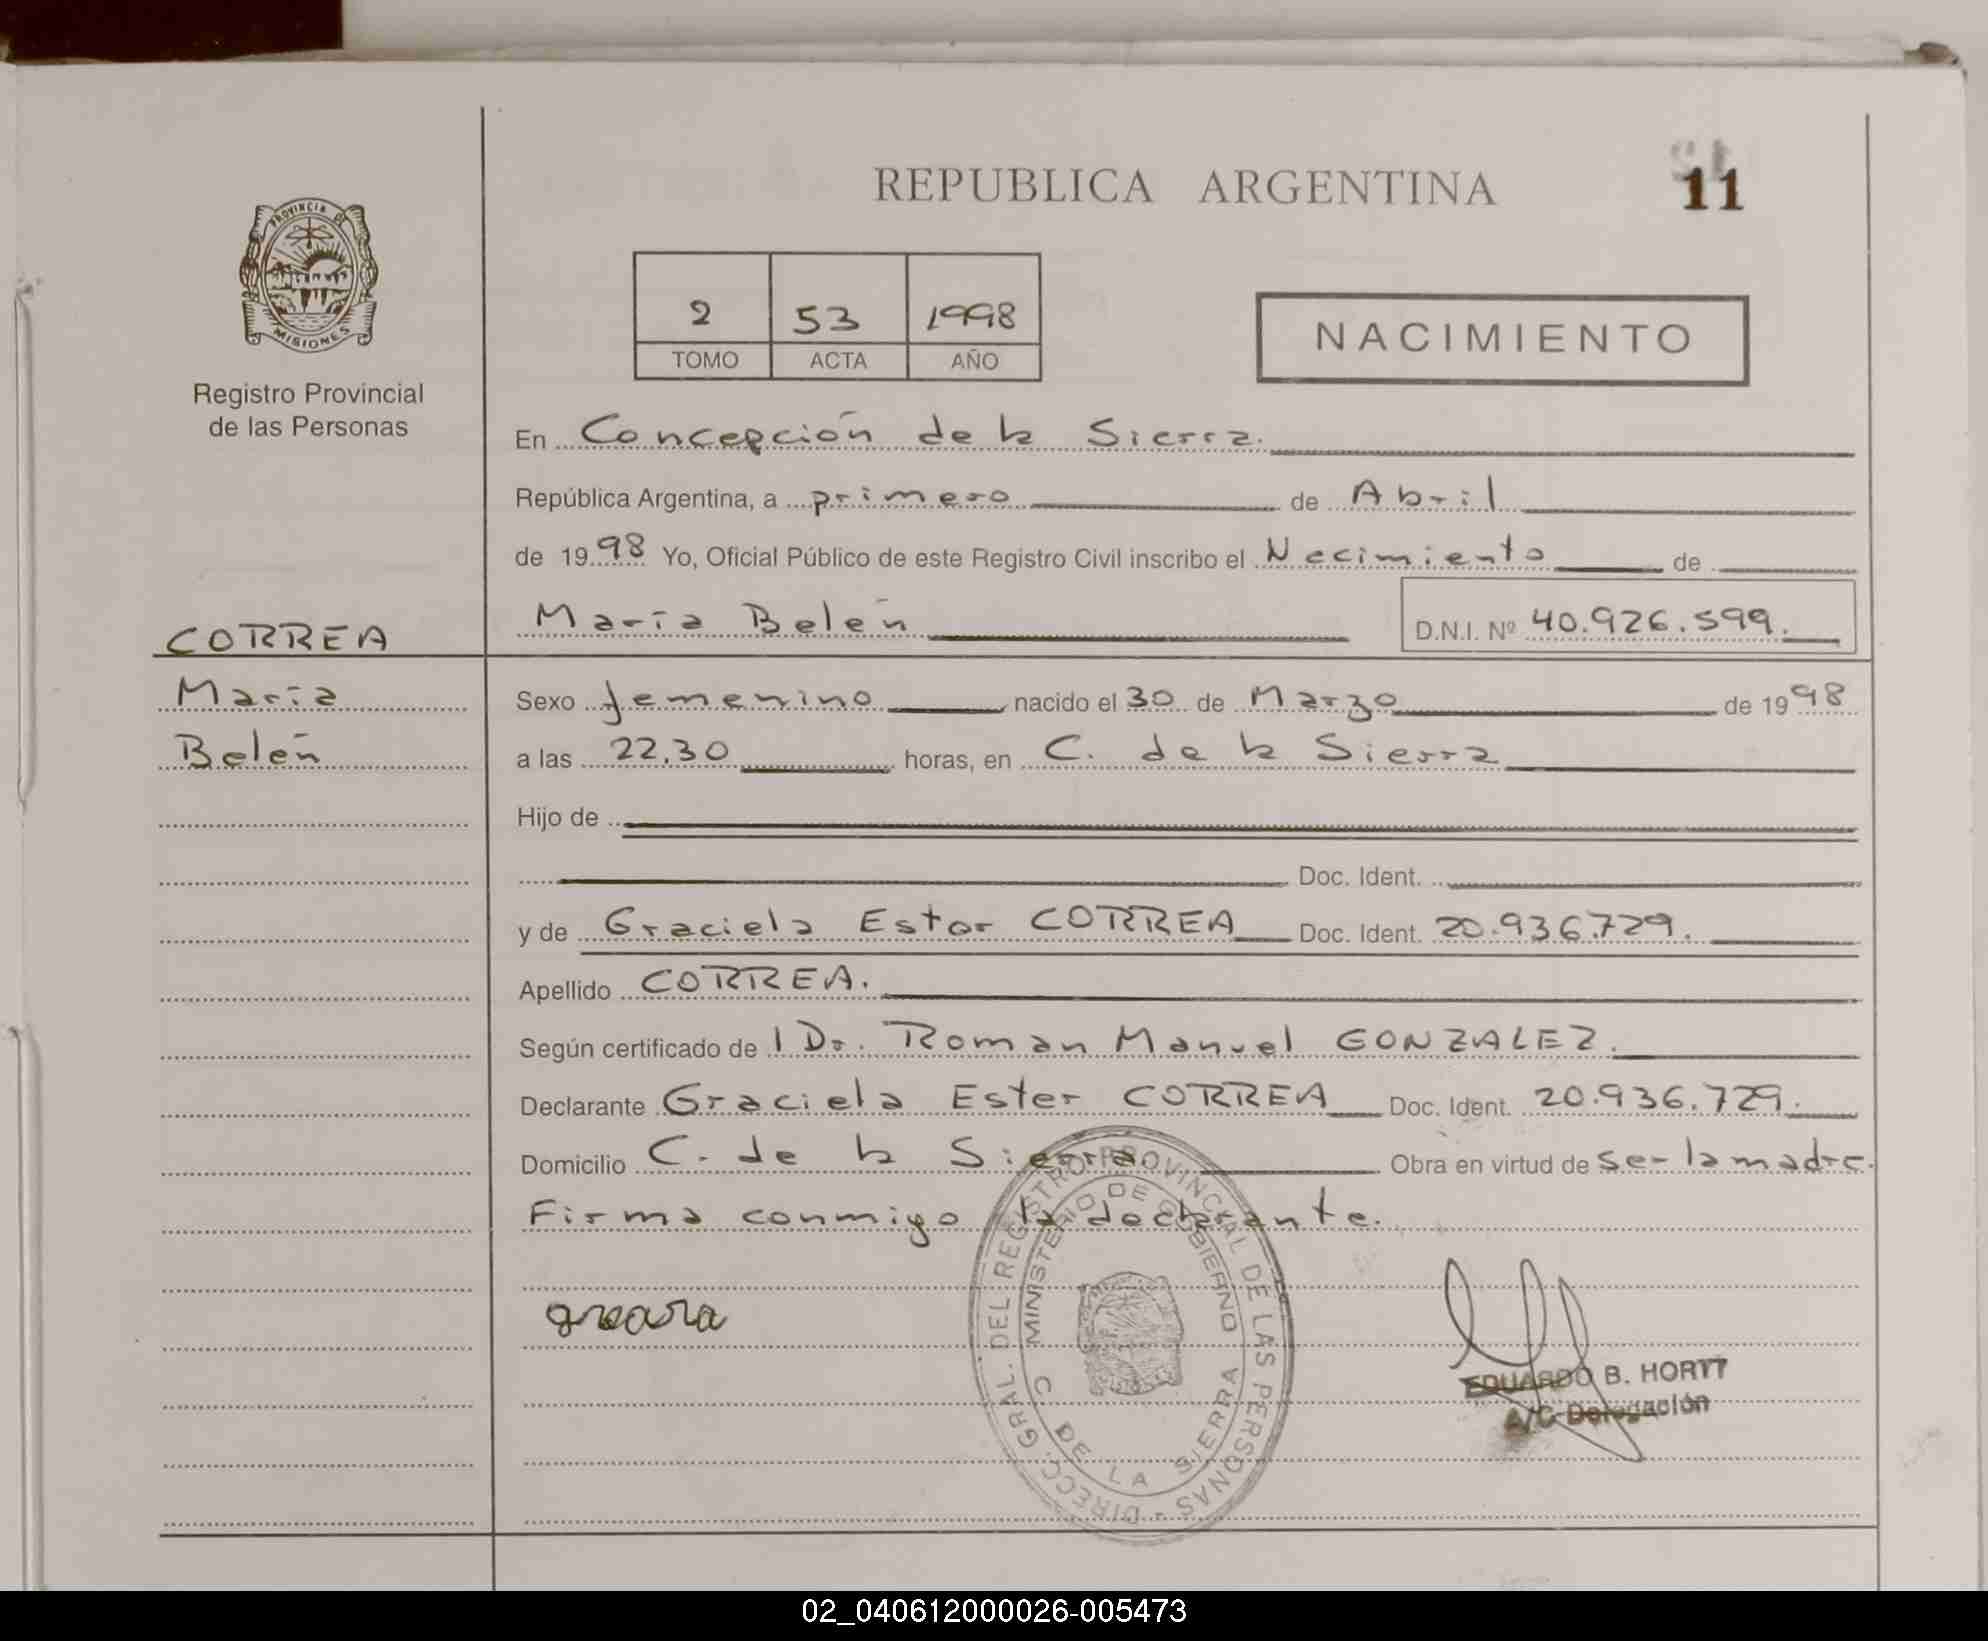 REPUBLICA ARGENTINA
11
PROVINCIA DE
MISIONES
Registro Provincial
de las Personas
2 53 1998
TOMO ACTA AÑO
NACIMIENTO
En Concepción de la Sierra.
República Argentina, a primero de Abril
de 1998 Yo, Oficial Público de este Registro Civil inscribo el Nacimiento de
CORREA
María Belén D.N.I. Nº 40.926.599.
María
Belén
Sexo femenino nacido el 30 de Marzo de 1998
a las 22.30 horas, en C. de la Sierra
Hijo de
Doc. Ident.
y de Graciela Ester CORREA Doc. Ident. 20.936.729.
Apellido CORREA.
Según certificado de l Dr. Roman Manuel GONZALEZ.
Declarante Graciela Ester CORREA Doc. Ident. 20.936.729.
Domicilio C. de la Sierra. Obra en virtud de ser la madre.
Firma conmigo la declarante.
DIRECC. GRAL. DEL REGISTRO PROVINCIAL DE LAS PERSONAS -
MINISTERIO DE GOBIERNO
C DE LA SIERRA
EDUARDO B. HORTT
A/C Delegación
02_040612000026-005473